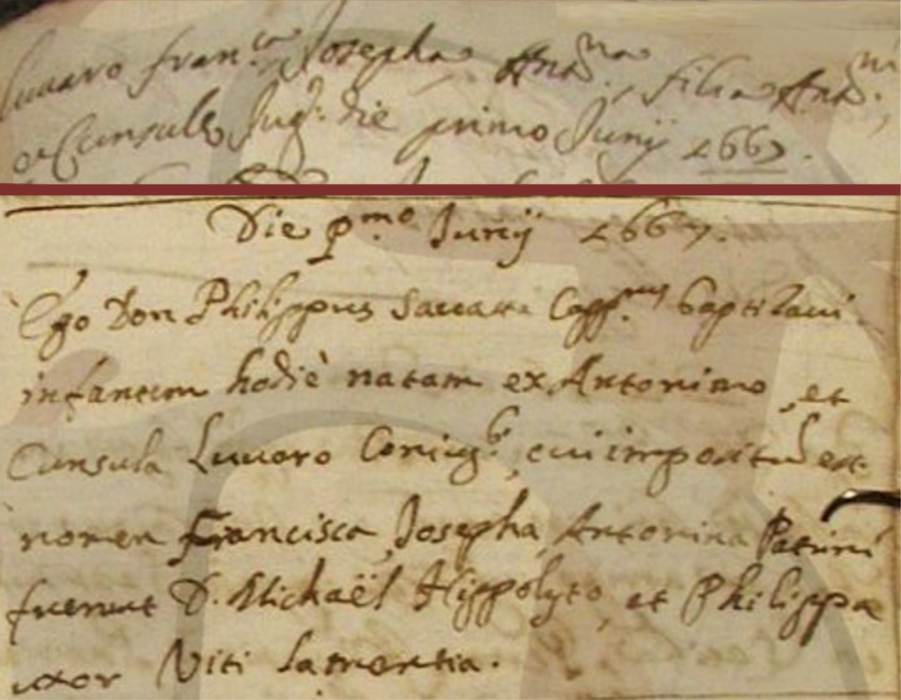 Luuaro Fran.ca Josepha Ant.na, filia Ant.ni
et Cunsule Jug: die primo Junij 1667.
Die p.mo Junij 1667.
Ego Don Philippus Saccara Capp.nus baptizaui
infantem hodiè natam ex Antonino, et
Cunsula Luuoro Coniug.b, cui impositũ est
nomen Francisca, Josepha, Antonina Patrini
fuerunt D. Michaël Hippolyto, et Philippa
uxor Viti Lamentia.